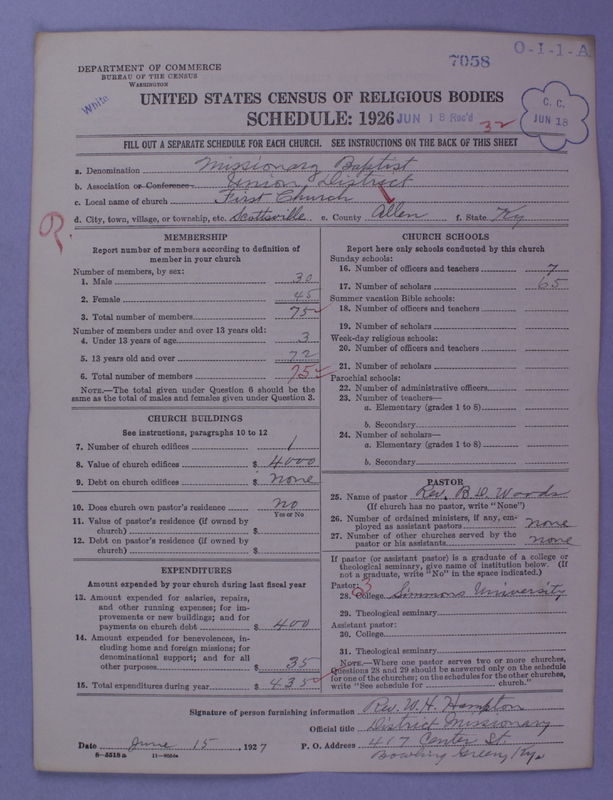 DEPARTMENT OF COMMERCE
BUREAU OF THE CENSUS
WASHINGTON
7058
O-I-1-A
White
UNITED STATES CENSUS OF RELIGIOUS BODIES
SCHEDULE: 1926
JUN 18 Rec'd
32
C. C.
JUN 18
FILL OUT A SEPARATE SCHEDULE FOR EACH CHURCH. SEE INSTRUCTIONS ON THE BACK OF THIS SHEET
a. Denomination Missionary Baptist
b. Association or Conference Union District
c. Local name of church First Church
d. City, town, village, or township, etc. Scottsville e. County Allen f. State Ky
R.
MEMBERSHIP
Report number of members according to definition of
member in your church
Number of members, by sex:
1. Male 30
2. Female 45
3. Total number of members 75
Number of members under and over 13 years old:
4. Under 13 years of age 3
5. 13 years old and over 72
6. Total number of members 75
NOTE.—The total given under Question 6 should be the
same as the total of males and females given under Question 3.
CHURCH BUILDINGS
See instructions, paragraphs 10 to 12
7. Number of church edifices 1
8. Value of church edifices $ 4000
9. Debt on church edifices $ none
10. Does church own pastor's residence no
Yes or No
11. Value of pastor's residence (if owned by
church) $
12. Debt on pastor's residence (if owned by
church) $
EXPENDITURES
Amount expended by your church during last fiscal year
13. Amount expended for salaries, repairs,
and other running expenses; for im-
provements or new buildings; and for
payments on church debt $ 400
14. Amount expended for benevolences, in-
cluding home and foreign missions; for
denominational support; and for all
other purposes $ 35
15. Total expenditures during year $ 435
CHURCH SCHOOLS
Report here only schools conducted by this church
Sunday schools:
16. Number of officers and teachers 7
17. Number of scholars 65
Summer vacation Bible schools:
18. Number of officers and teachers
19. Number of scholars
Week-day religious schools:
20. Number of officers and teachers
21. Number of scholars
Parochial schools:
22. Number of administrative officers
23. Number of teachers—
a. Elementary (grades 1 to 8)
b. Secondary
24. Number of scholars—
a. Elementary (grades 1 to 8)
b. Secondary
PASTOR
25. Name of pastor Rev. B. D. Woods
(If church has no pastor, write "None")
26. Number of ordained ministers, if any, em-
ployed as assistant pastors none
27. Number of other churches served by the
pastor or his assistants none
If pastor (or assistant pastor) is a graduate of a college or
theological seminary, give name of institution below. (If
not a graduate, write "No" in the space indicated.)
Pastor:
28. College Simmons University
29. Theological seminary
Assistant pastor:
30. College
31. Theological seminary
NOTE.—Where one pastor serves two or more churches,
Questions 28 and 29 should be answered only on the schedule
for one of the churches; on the schedules for the other churches,
write "See schedule for church."
Signature of person furnishing information Rev. W. H. Hampton
Official title District Missionary
Date June 15, 1927 P. O. Address 417 Center St.
Bowling Green, Ky.